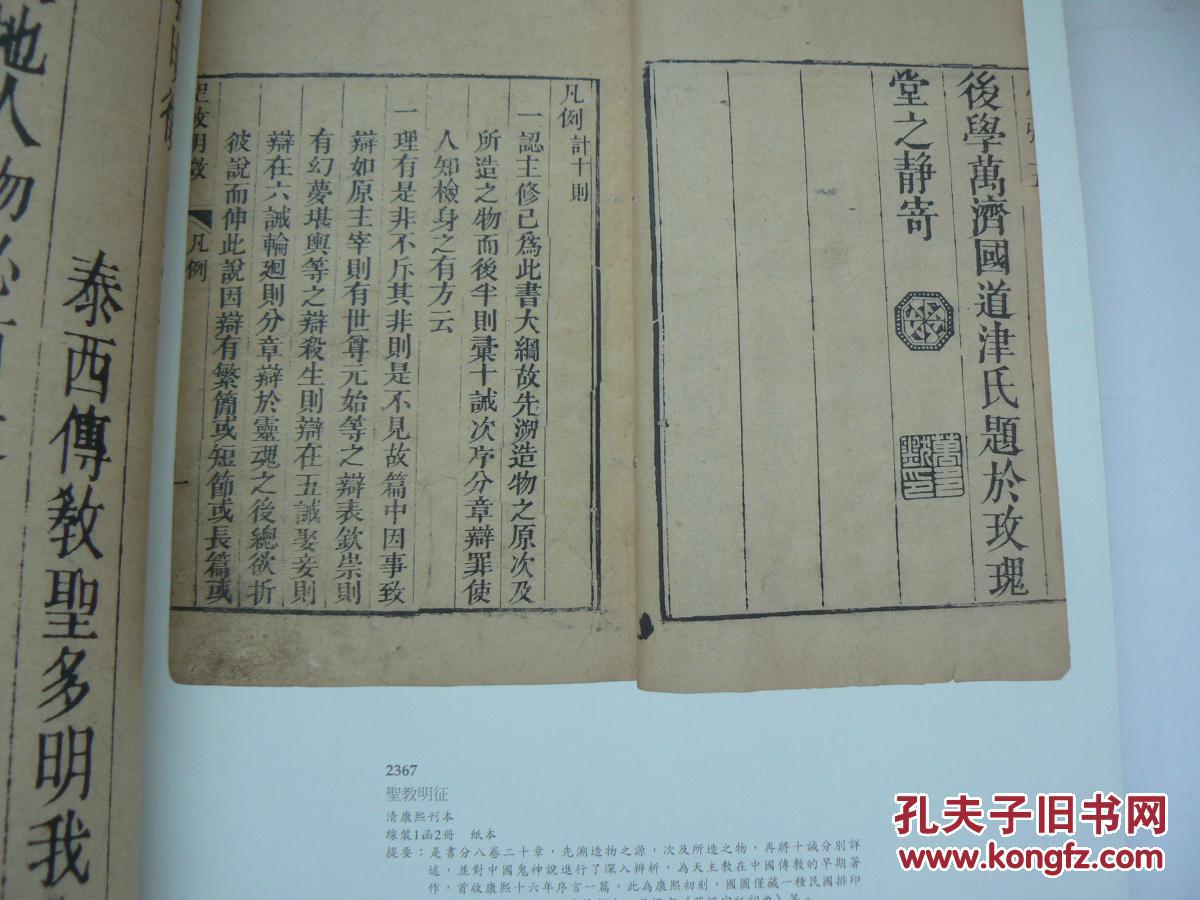 後學萬濟國道津氏題於玫瑰
堂之靜寄
凡例 計十則
一認主修己為此書大綱故先溯造物之原次及
所造之物而後半則彙十誡次序分章辯罪使
人知檢身之有方云
一理有是非不斥其非則是不見故篇中因事致
辯如原主宰則有世尊元始等之辯表欽崇則
有幻夢堪輿等之辯殺生則辯在五誡娶妾則
辯在六誡輪廻則分章辯於靈魂之後總欲折
彼說而伸此說因辯有繁簡或短節或長篇或
聖教明徵
凡例
一
地人物
泰西傳教聖多明我
2367
聖教明征
清康熙刊本
線裝1函2冊 紙本
提要：是書分八卷二十章，先溯造物之源，次及所造之物，再將十誡分別詳
述，並對中國鬼神說進行了深入辨析，為天主教在中國傳教的早期著
作，首收康熙十六年序言一篇。此為康熙初刻，國圖僅藏一種民國排印
孔夫子旧书网
BOOK.KONGFZ.COM